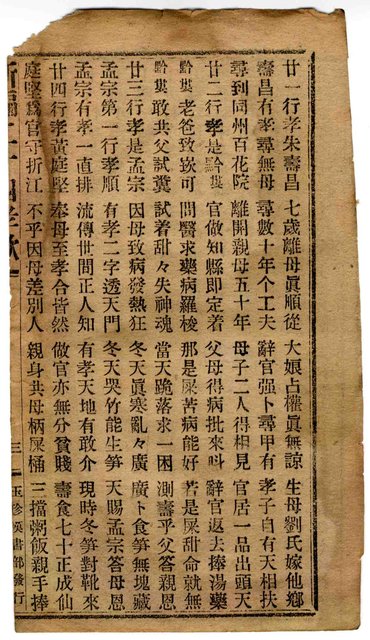 廿一行孝朱壽昌 七歲離母眞順從 大娘占權眞無諒 生母劉氏嫁他鄉
壽昌有孝尋無母 尋數十年个工夫 辭官强卜尋甲有 孝子自有天相扶
尋到同州百花院 離開親母五十年 母子二人得相見 官居一品出頭天
廿二行孝是黔婁 官做知縣即定着 父母得病批來呌 辭官返去捧湯藥
黔婁老爸致崁可 問醫求藥病羅梭 那是屎苦病能好 若是屎甜命就無
黔婁敢共父試糞 試着甜々失神魂 當天跪落求一困 測壽乎父答親恩
廿三行孝是孟宗 因母致病發熱狂 冬天眞寒亂々廣 廣卜食笋無塊藏
孟宗第一行孝順 有孝二字透天門 冬天哭竹能生笋 天賜孟宗答母恩
孟宗有孝一直排 流傳世間正人知 有孝天地有敢介 現時冬笋對靴來
廿四行孝黃庭堅 奉母至孝合皆然 做官亦無分貧賤 壽食七十正成仙
庭堅爲官守折江 不乎因母差別人 親身共母柄屎桶 三擋粥飯親手捧
三 玉珍漢書部發行